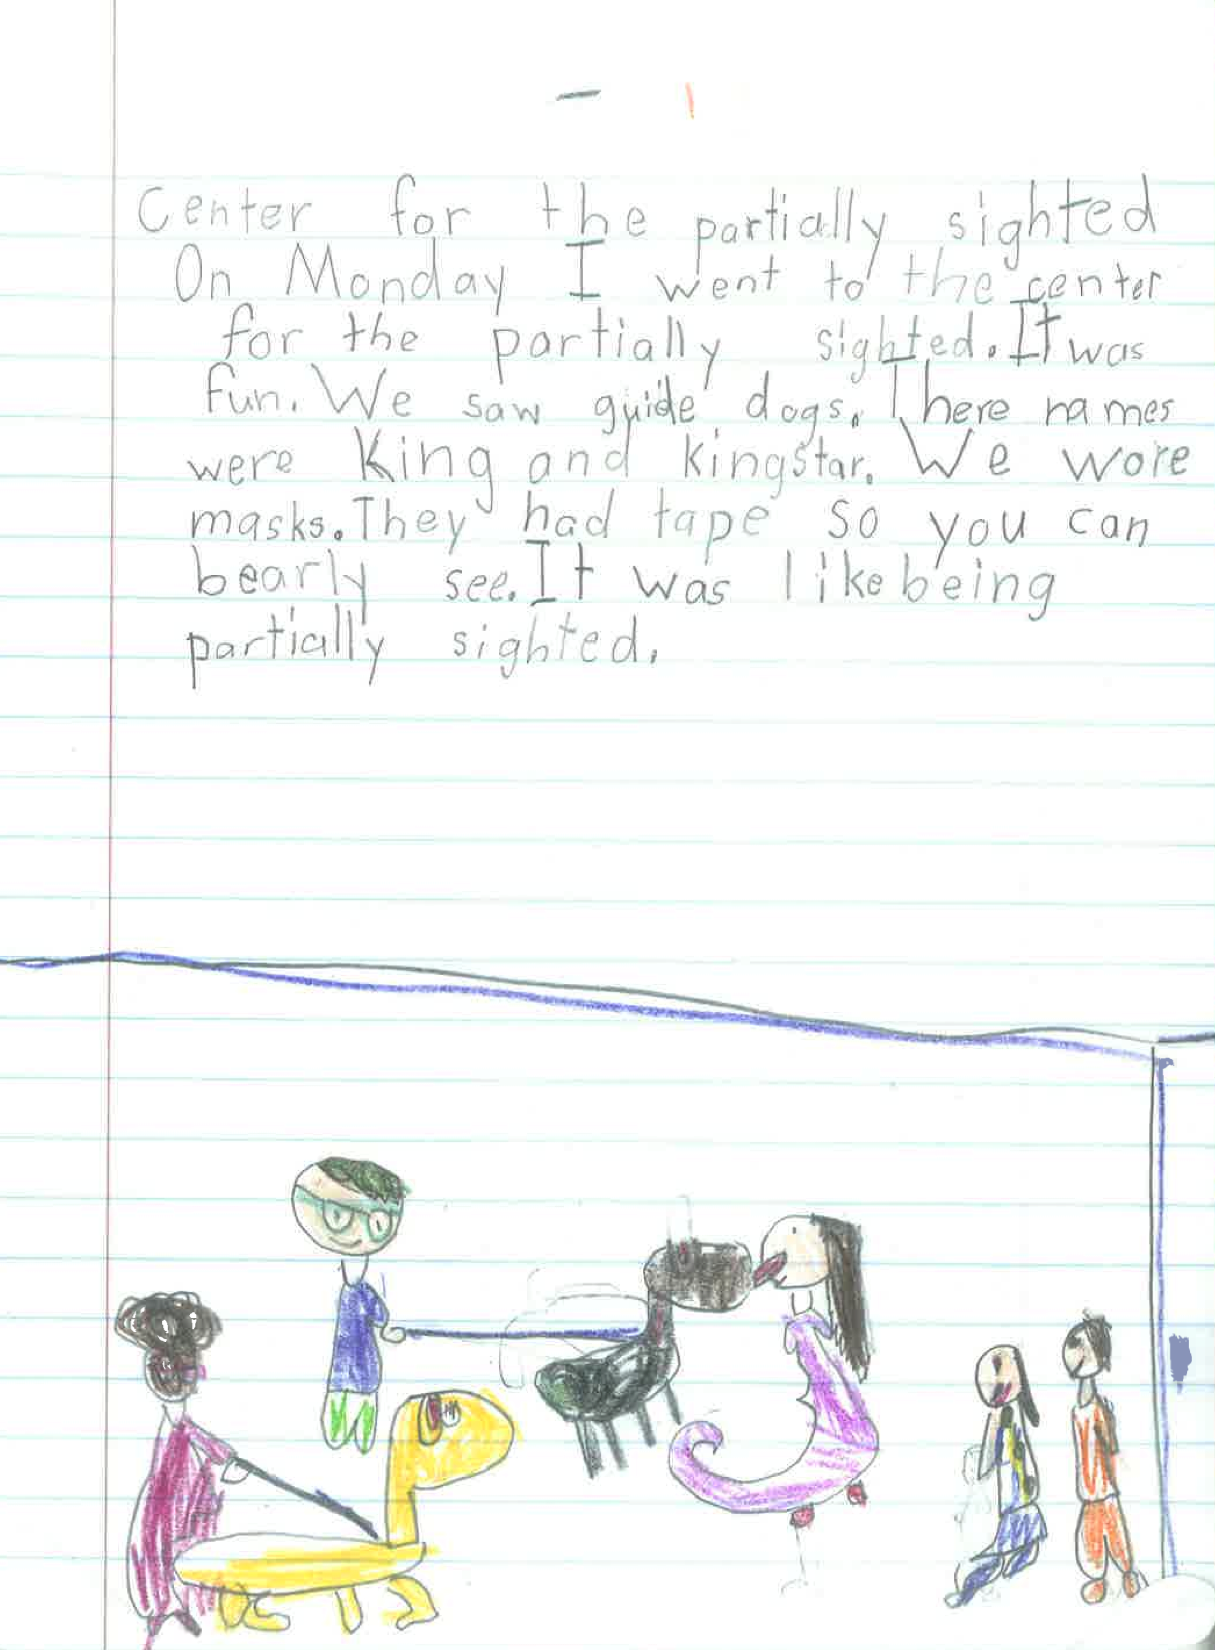 Center for the partially sighted
On Monday I went to the center
for the partially sighted. It was
fun. We saw guide dogs. There names
were King and kingstar. We wore
masks. They had tape so you can
bearly see. It was like being
partially sighted.